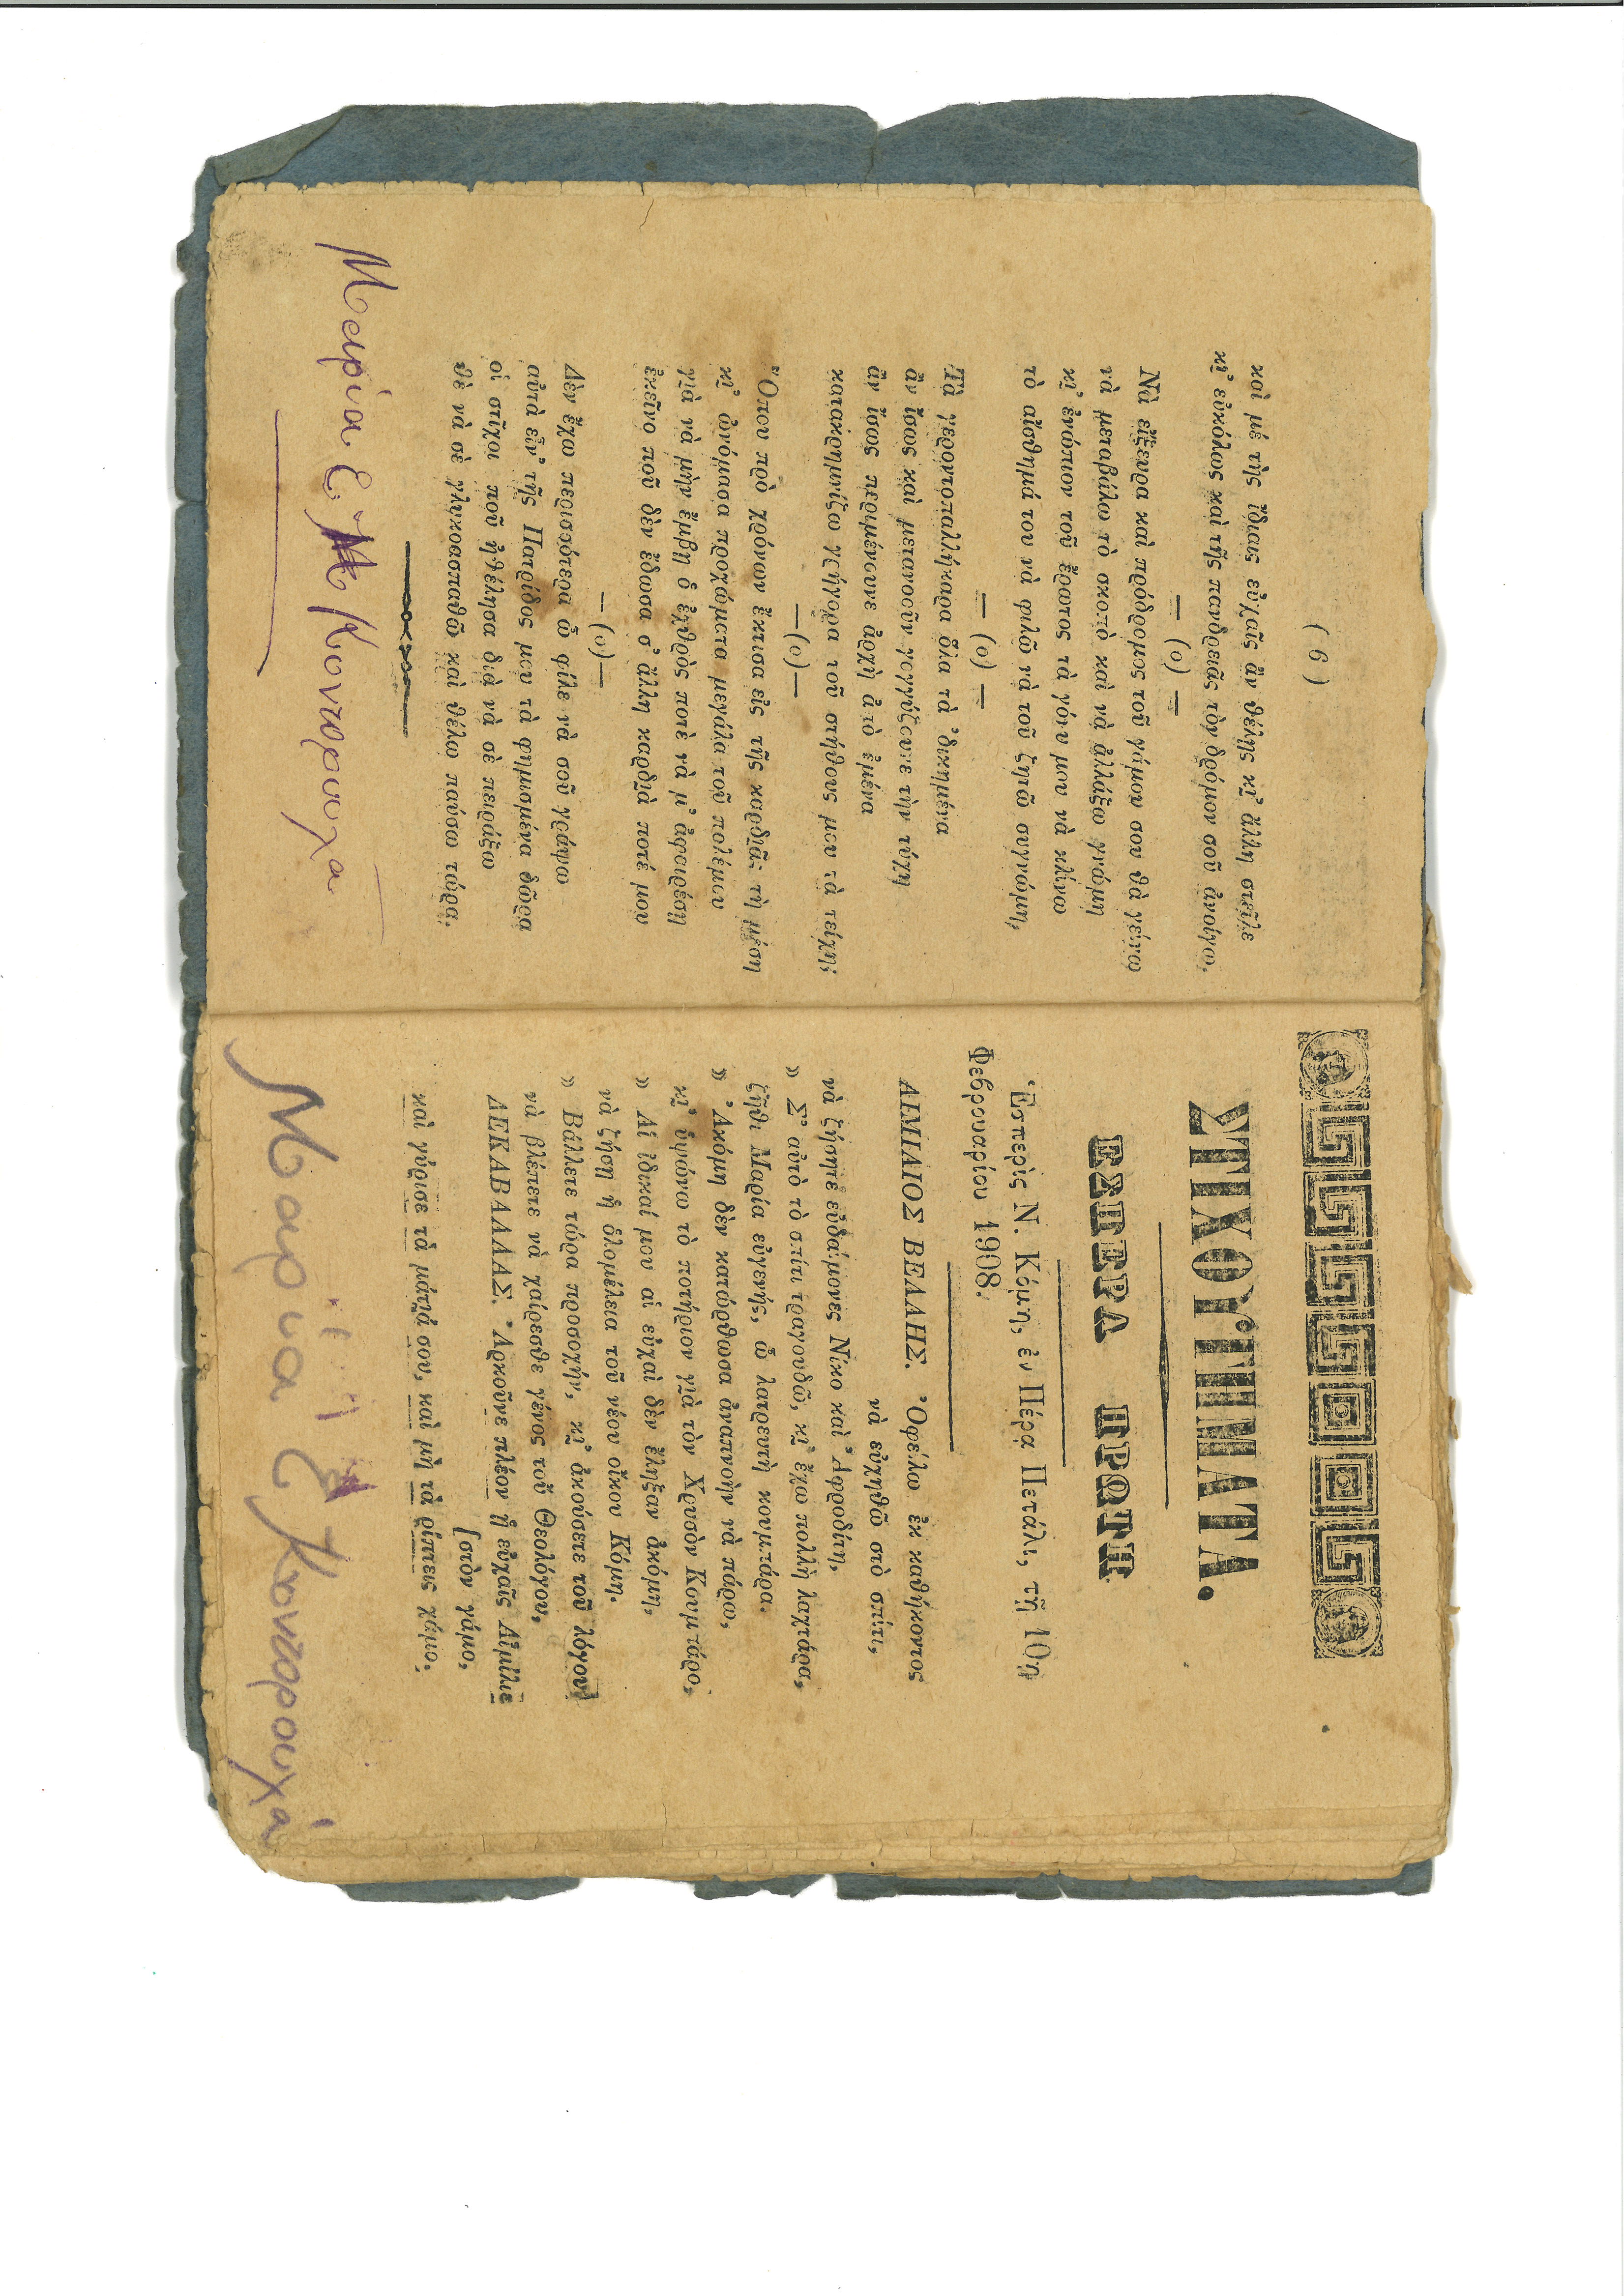 ( 6 )
καὶ μέ τὴς ἴδιαις εὐχαῖς ἄν θέλῃς κι̯ ἄλλη στεῖλε
κι̯ εὐκόλως καὶ τῆς πανδρειᾶς τὸν δρόμον σοῦ ἀνοίγω.
— (ο) —
Νὰ εἴξευρα καὶ πρόδρομος τοῦ γάμου σου θὰ γείνω
νὰ μεταβάλω τὸ σκοπὸ καὶ νὰ ἀλλάξω γνώμη
κι̯ ἐνώπιον τοῦ ἔρωτος τὰ γόνυ μου νὰ κλίνω
τὸ αἴσθημά του νὰ φιλῶ νὰ τοῦ ζητῶ συγνώμη,
— (ο) —
Τὰ γεροντοπαλλήκαρα ὅλα τὰ ᾿δικημένα
ἂν ἴσως καὶ μετανοοῦν γογγύζουνε τὴν τύχη
ἂν ἴσως περιμένουνε ἀρχὴ ἀπὸ ἐμένα
κατακρημνίζω γρήγορα τοῦ στήθους μου τὰ τείχη;
— (ο) —
Ὅπου πρὸ χρόνων ἔκτισα εἰς τῆς καρδιᾶς τὴ μέση
κι̯ ὀνόμασα προχώματα μεγάλα τοῦ πολέμου
γι̯ὰ νὰ μὴν ἔμβῃ ὁ ἐχθρὸς ποτὲ νὰ μ᾿ ἀφαιρέσῃ
ἐκεῖνο ποῦ δὲν ἔδωσα σ᾿ ἄλλη καρδι̯ὰ ποτέ μου
— (ο) —
Δὲν ἔχω περισσότερα ὦ φίλε νὰ σοῦ γράψω
αὐτὰ εἶν᾿ τῆς Πατρίδος μου τὰ φημισμένα δῶρα
οἱ στῖχοι ποῦ ἠθέλησα διὰ νὰ σὲ πειράξω
θὲ νὰ σὲ γλυκοασπαθῶ καὶ θέλω παύσω τώρα.
Μαρία Ε. Κονταρουχα
ΣΤΙΧΟΥΓΗΜΑΤΑ.
ΕΣΠΕΡΑ ΠΡΩΤΗ
Ἑσπερὶς Ν. Κόμη, ἐν Πέρᾳ Πετάλι, τῇ 10ῃ
Φεβρουαρίου 1908.
ΑΙΜΙΛΙΟΣ ΒΕΛΛΗΣ. Ὀφείλω ἐκ καθήκοντος
νὰ εὐχηθῶ στὸ σπίτι,
νὰ ζήσητε εὐδαίμονες Νίκο καὶ Ἀφροδίτη,
» Σ᾿ αὐτὸ τὸ σπίτι τραγουδῶ, κι̯ ἔχω πολλὴ λαχτάρα,
ζῆθι Μαρία εὐγενής, ὦ λατρευτὴ κουμπάρα.
» Ἀκόμη δὲν κατώρθωσα ἀναπνοὴν νὰ πάρω,
κι̯ ὑψόνω τὸ ποτήριον γι̯ὰ τὸν Χρυσὸν Κουμπάρο,
» Αἱ ἰδικαί μου αἱ εὐχαὶ δὲν ἔληξαν ἀκόμη,
νὰ ζήσῃ ἡ ὁλομέλεια τοῦ νέου οἴκου Κόμη.
» Βάλλετε τώρα προσοχήν, κι̯ ἀκούσετε τοῦ λόγου
νὰ βλέπετε νὰ χαίρεσθε γένος τοῦ Θεολόγου,
ΔΕΚΑΒΑΛΛΑΣ. Ἀρκοῦνε πλέον ᾑ εὐχαῖς Αἰμίλιε
[στὸν γάμο,
καὶ γύρισε τὰ μάτι̯ά σου, καὶ μὴ τὰ ρίπτεις χάμω.
Μαρία Ε Κονταρουχά